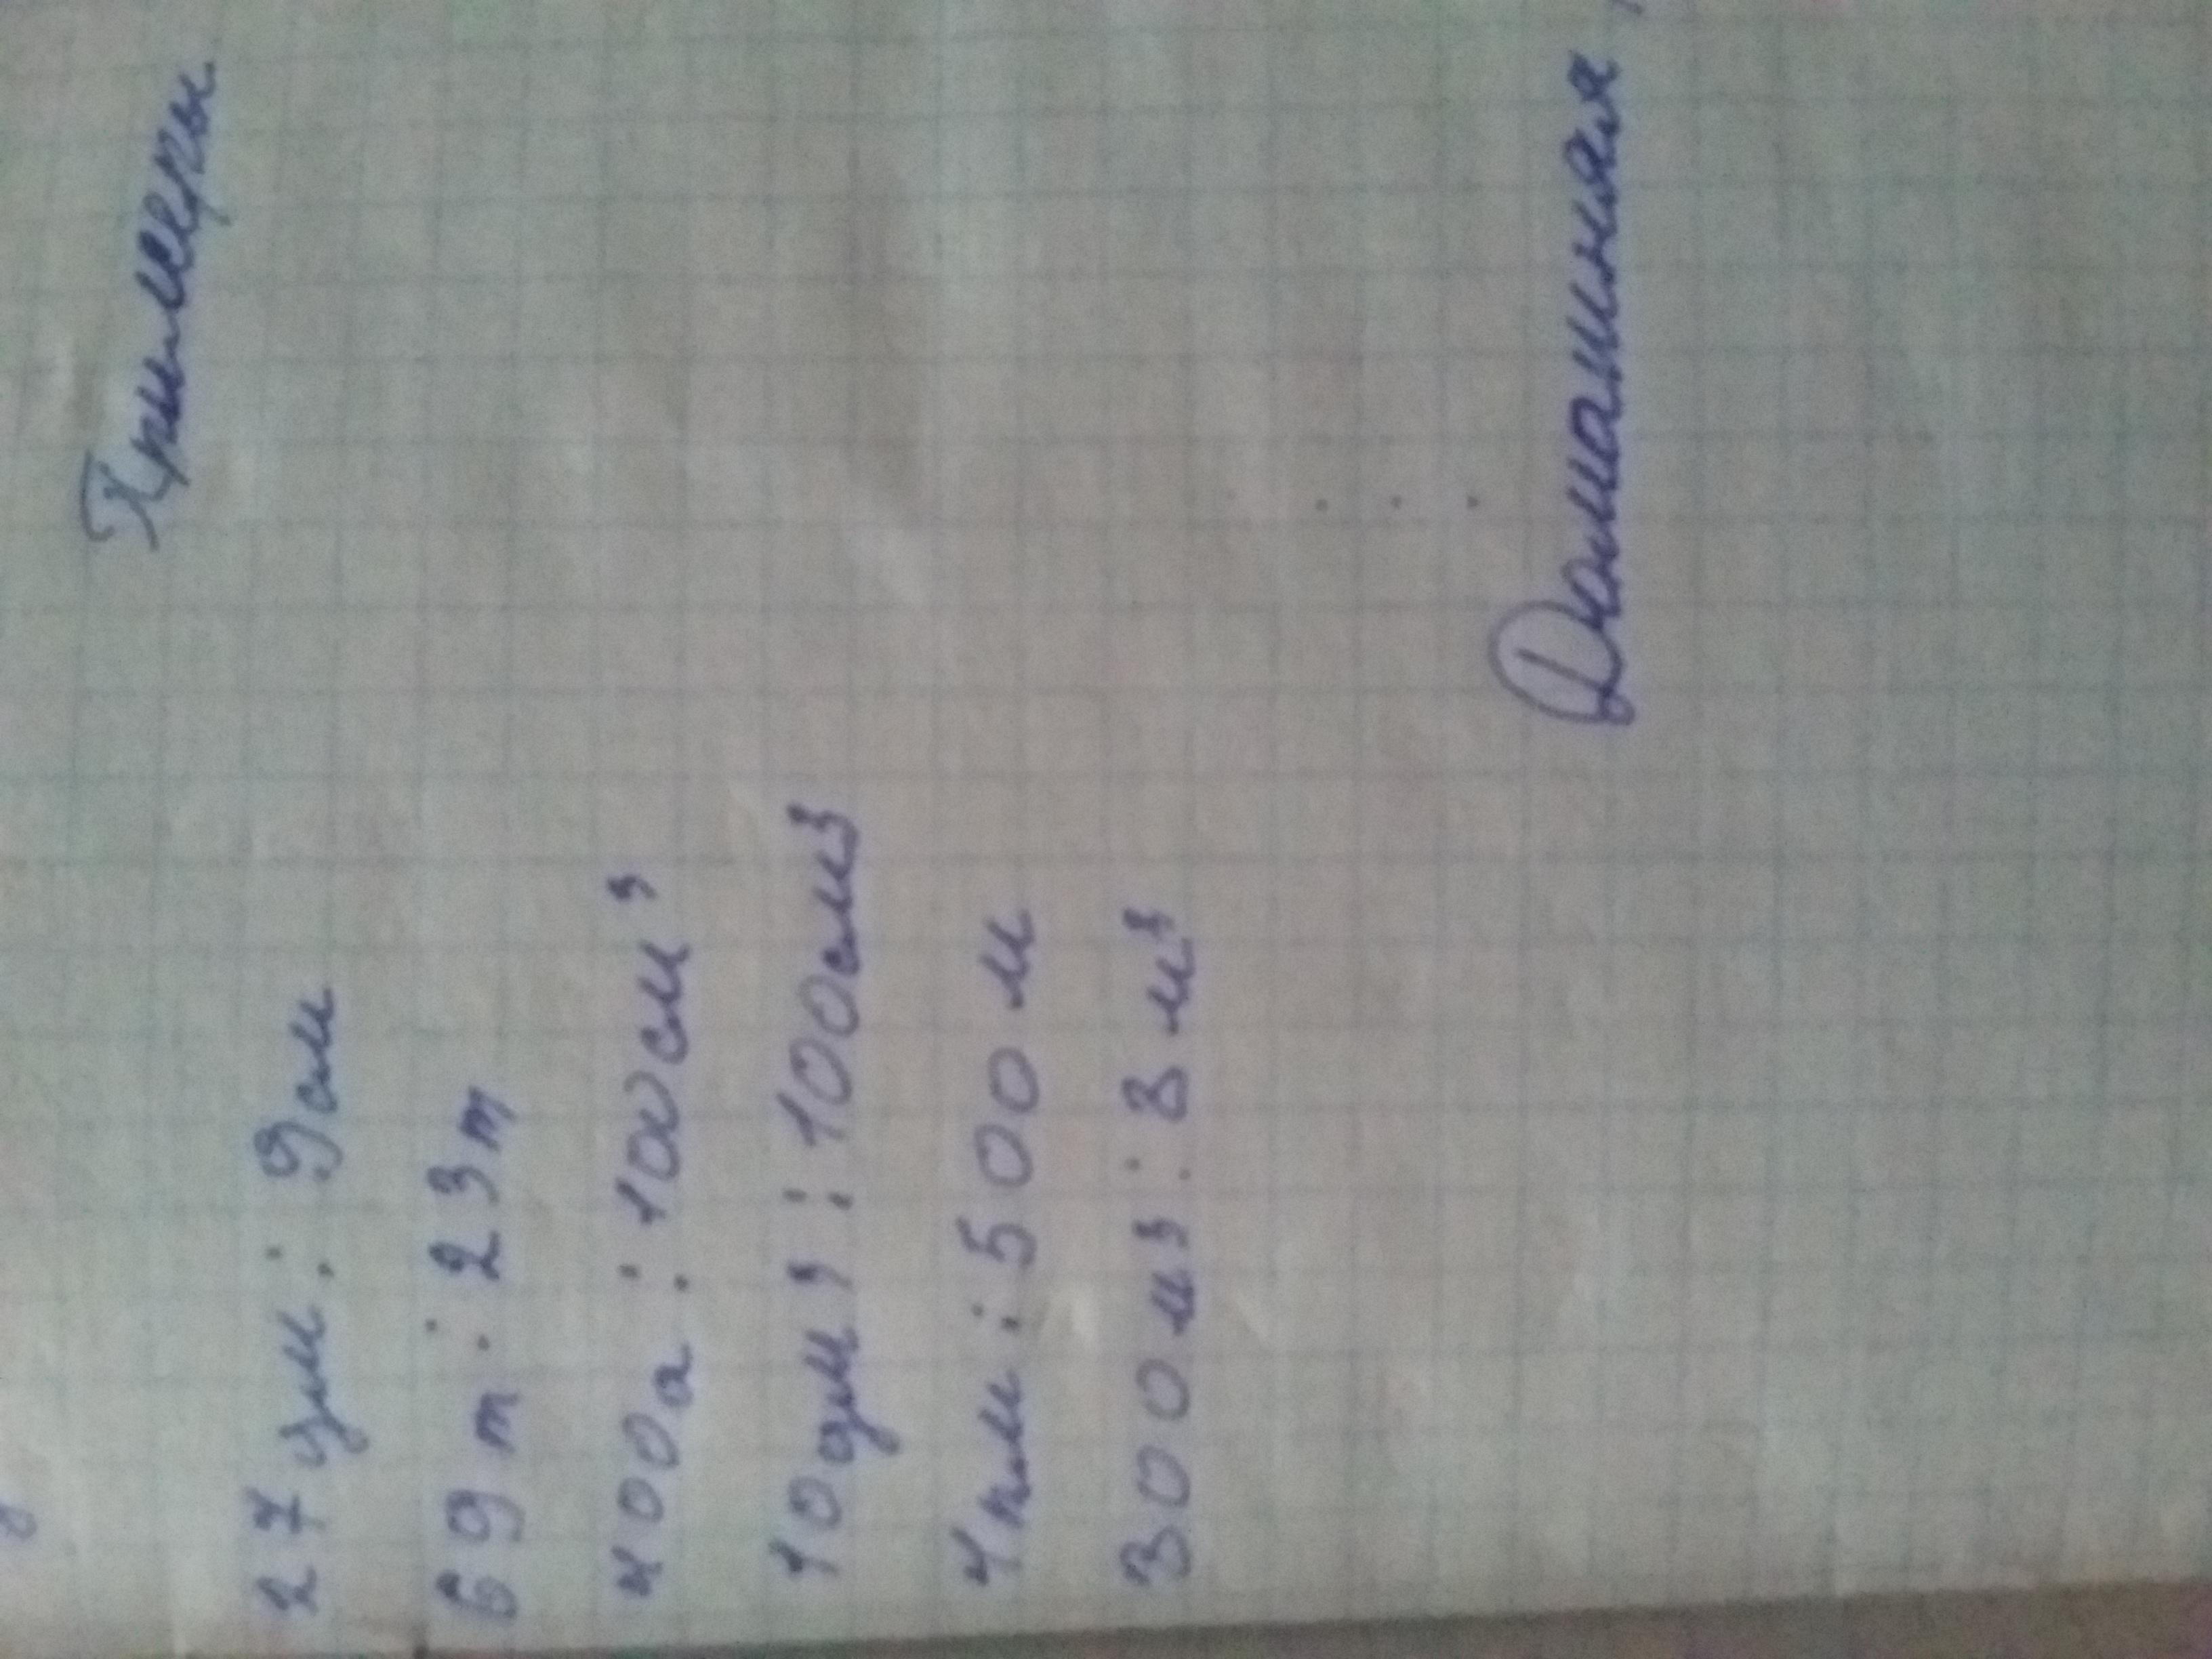 Примеры
27 дм : 9 см
69 т : 23 т
400 а : 100 см³
10 дм³ : 100 см³
4 км : 500 м
300 м³ : 3 м³
Домашняя